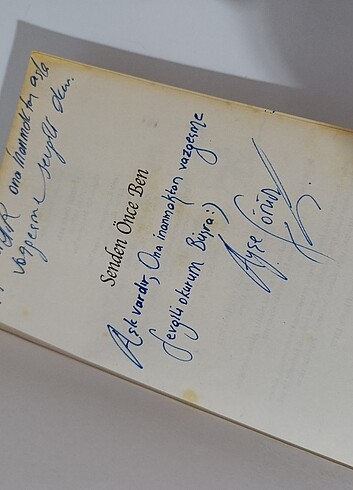 ona inanmaktan asla
vazgeçme
Senden Önce Ben
Aşk vardır, Ona inanmaktan vazgeçme
Sevgili okurum Büşra :)
Ayşe